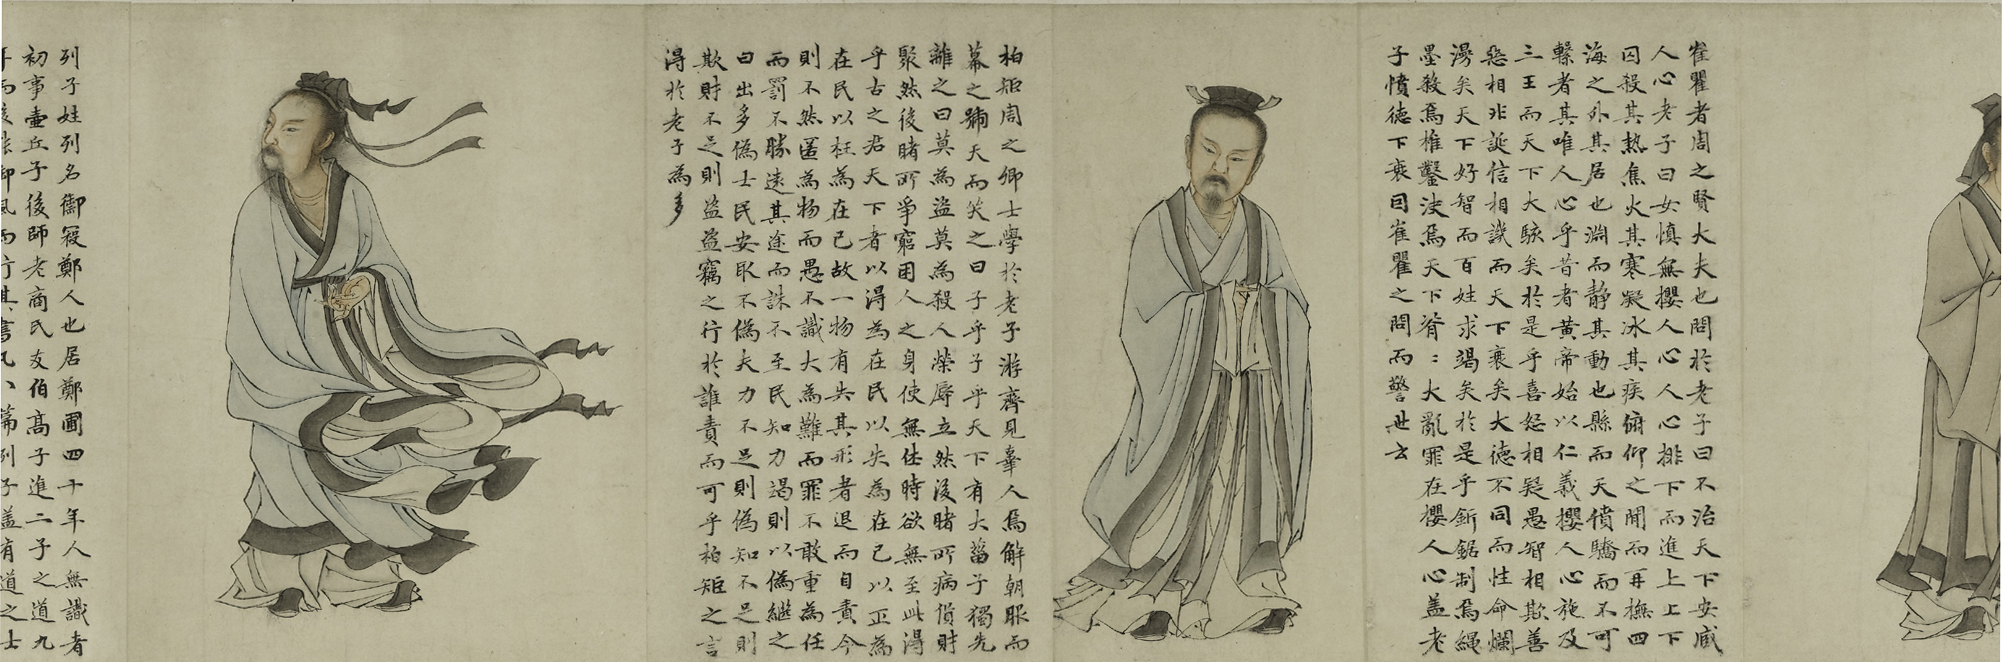 崔瞿者周之賢大夫也問於老子曰不治天下安臧
人心老子曰女慎無攖人心人心排下而進上上下
囚殺其熱焦火其寒凝冰其疾俯仰之間而再撫四
海之外其居也淵而靜其動也縣而天僨驕而不可
繫者其唯人心乎昔者黃帝始以仁義攖人心施及
三王而天下大駭矣於是乎喜怒相疑愚智相欺善
惡相非誕信相譏而天下衰矣大德不同而性命爛
漫矣天下好智而百姓求竭矣於是乎釿鋸制焉繩
墨殺焉椎鑿決焉天下脊〻大亂罪在攖人心盖老
子憤德下衰因崔瞿之問而警世云
柏矩周之卿士學於老子游齊見辜人焉解朝服而
幕之號天而哭之曰子乎子乎天下有大菑子獨先
離之曰莫為盜莫為殺人榮辱立然後睹所病貨財
聚然後睹所爭窮困人之身使無休時欲無至此得
乎古之君天下者以得為在民以失為在己以正為
在民以枉為在己故一物有失其形者退而自責今
則不然匿為物而愚不識大為難而罪不敢重為任
而罰不勝遠其途而誅不至民知力竭則以偽繼之
日出多偽士民安取不偽夫力不足則偽知不足則
欺財不足則盜盜竊之行於誰責而可乎柏矩之言
得於老子為多
列子姓列名禦寇鄭人也居鄭圃四十年人無識者
初事壺丘子後師老商氏友伯高子進二子之道九
年而後能御風而行其書凡八篇列子盖有道之士